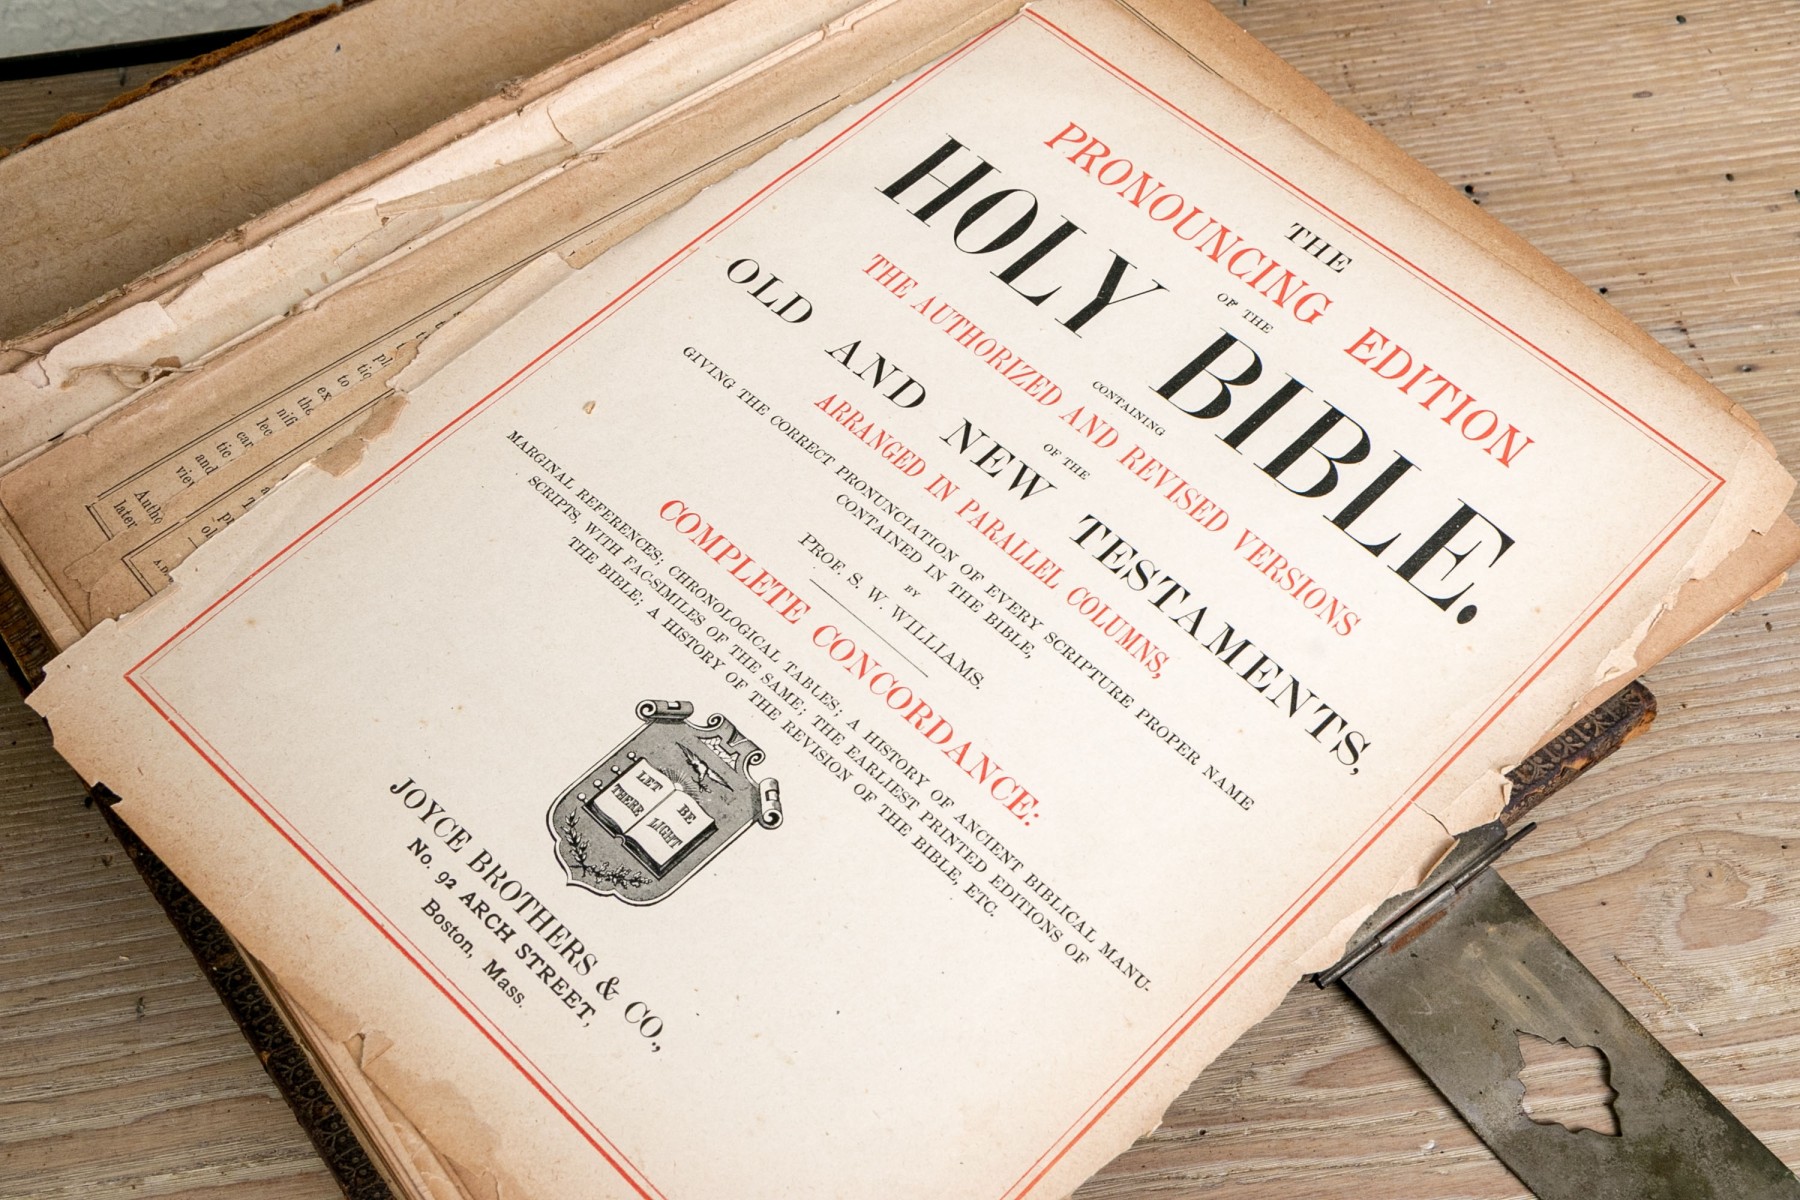 THE
PRONOUNCING EDITION
OF THE
HOLY BIBLE.
CONTAINING
THE AUTHORIZED AND REVISED VERSIONS
OF THE
OLD AND NEW TESTAMENTS,
ARRANGED IN PARALLEL COLUMNS,
GIVING THE CORRECT PRONUNCIATION OF EVERY SCRIPTURE PROPER NAME
CONTAINED IN THE BIBLE,
BY
PROF. S. W. WILLIAMS.
COMPLETE CONCORDANCE:
MARGINAL REFERENCES; CHRONOLOGICAL TABLES; A HISTORY OF ANCIENT BIBLICAL MANU-
SCRIPTS, WITH FAC-SIMILES OF THE SAME; THE EARLIEST PRINTED EDITIONS OF
THE BIBLE; A HISTORY OF THE REVISION OF THE BIBLE, ETC.
LET BE
THERE LIGHT
JOYCE BROTHERS & CO.,
No. 92 ARCH STREET,
Boston, Mass.
to
ex
the
nifi
lec
car
tic
and
Autho
later